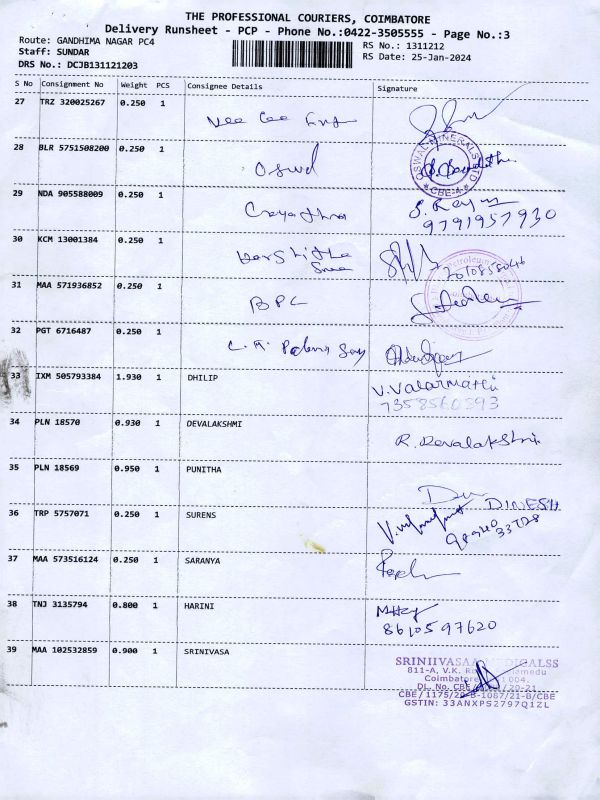 THE PROFESSIONAL COURIERS, COIMBATORE
Delivery Runsheet - PCP - Phone No.:0422-3505555 - Page No.:3
Route: GANDHIMA NAGAR PC4
Staff: SUNDAR
DRS No.: DCJB131121203
RS No.: 1311212
RS Date: 25-Jan-2024
S No Consignment No Weight PCS Consignee Details Signature
27 TRZ 320025267 0.250 1 Vee Cee
28 BLR 5751508200 0.250 1 Oswal
OSWAL MINERALS LTD
CBE-4
29 NDA 905588009 0.250 1 Gayathri
9791957930
30 KCM 13001384 0.250 1
31 MAA 571936852 0.250 1 BPC
32 PGT 6716487 0.250 1
33 IXM 505793384 1.930 1 DHILIP V. Valarmathi
7358560393
34 PLN 18570 0.930 1 DEVALAKSHMI R. Devalakshmi
35 PLN 18569 0.950 1 PUNITHA
DINESH
36 TRP 5757071 0.250 1 SURENS
37 MAA 573516124 0.250 1 SARANYA
38 TNJ 3135794 0.800 1 HARINI
8610597620
39 MAA 102532859 0.900 1 SRINIVASA
811-A, V.K.
Coimbatore
CBE/1175/20-B-1087/21-B/CBE
GSTIN: 33ANXPS2797Q1ZL